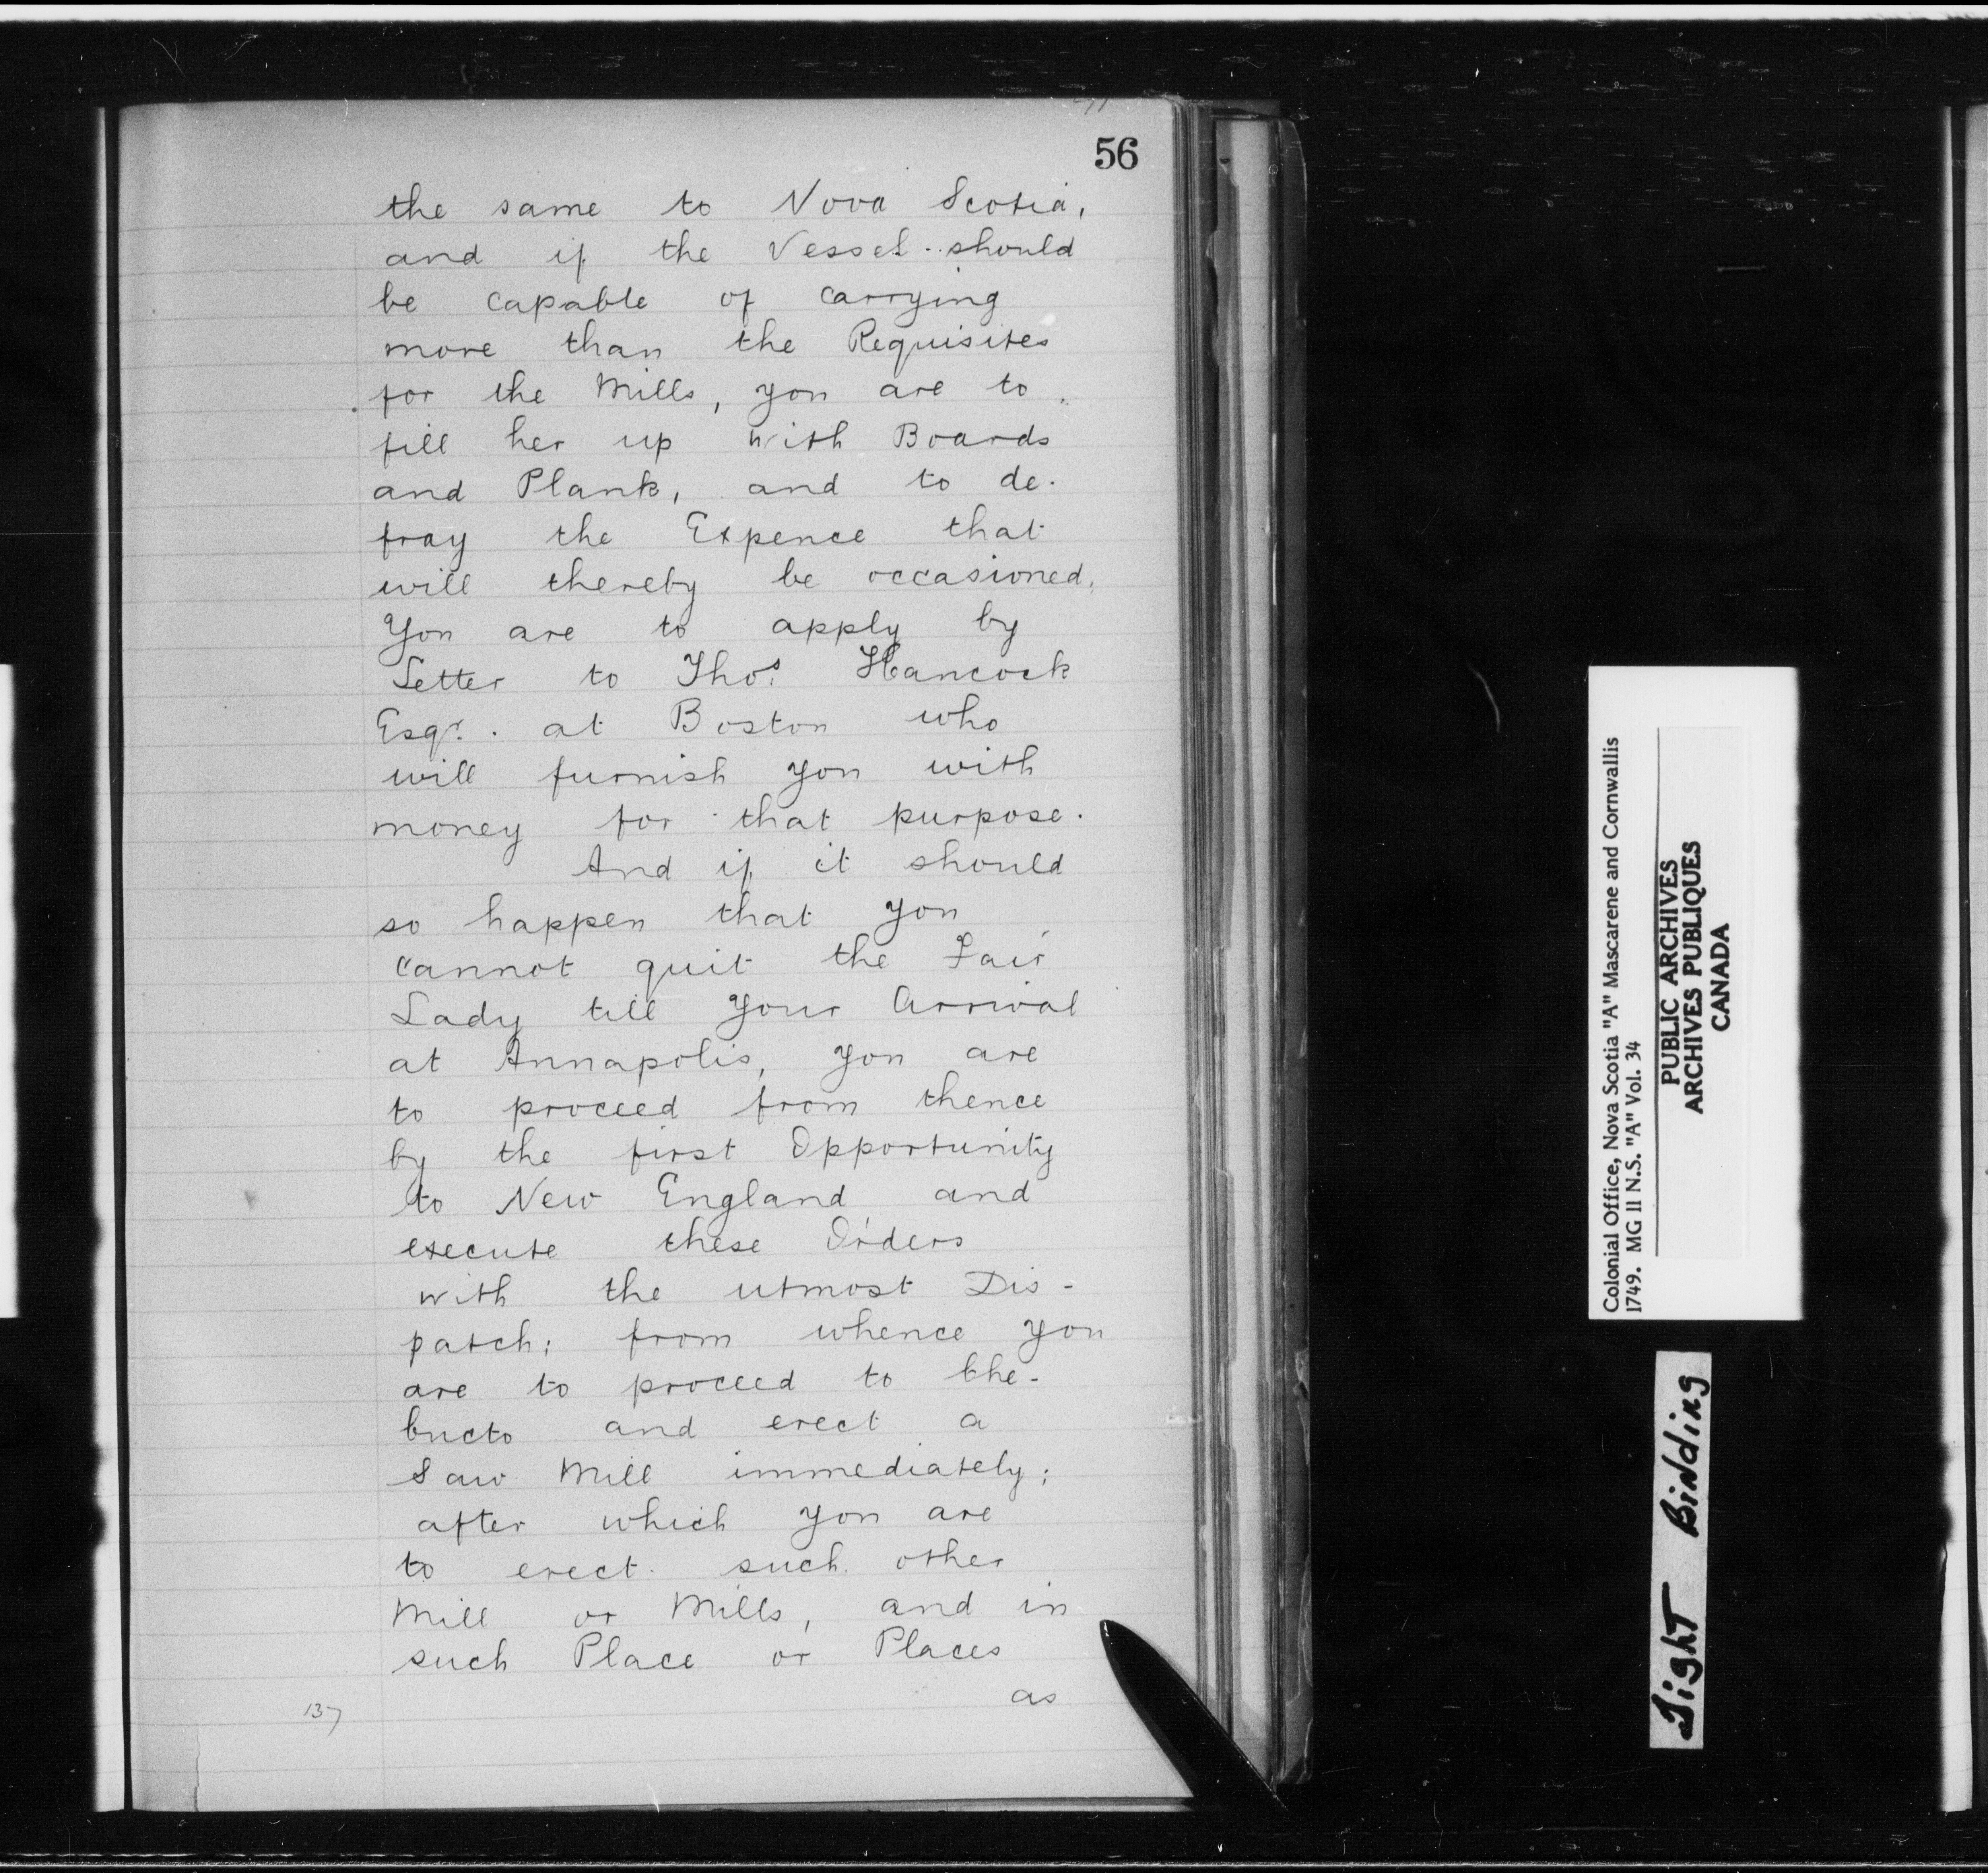 56
the same to Nova Scotia,
and if the Vessel should
be capable of carrying
more than the Requisites
for the Mills, you are to
fill her up with Boards
and Plank, and to de-
fray the Expence that
will thereby be occasioned,
You are to apply by
Letter to Thos. Hancock
Esqr. at Boston who
will furnish you with
money for that purpose.
And if it should
so happen that you
cannot quit the Fair
Lady till your Arrival
at Annapolis, you are
to proceed from thence
by the first Opportunity
to New England and
execute these Orders
with the utmost Dis-
patch; from whence you
are to proceed to Che-
bucto and erect a
Saw Mill immediately;
after which you are
to erect such other
Mill or Mills, and in
such Place or Places
as
137
Colonial Office, Nova Scotia "A" Mascarene and Cornwallis
1749. MG II N.S. "A" Vol. 34
PUBLIC ARCHIVES
ARCHIVES PUBLIQUES
CANADA
Tight Binding